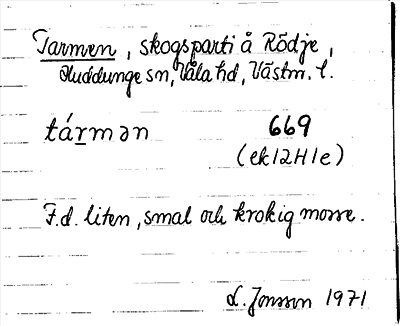 Tarmen, skogsparti å Rödje,
Huddunge sn, Våla hd, Västm. l.
tármən 669
(ek12H1e)
F.d. liten, smal och krokig mosse.
L. Jonsson 1971